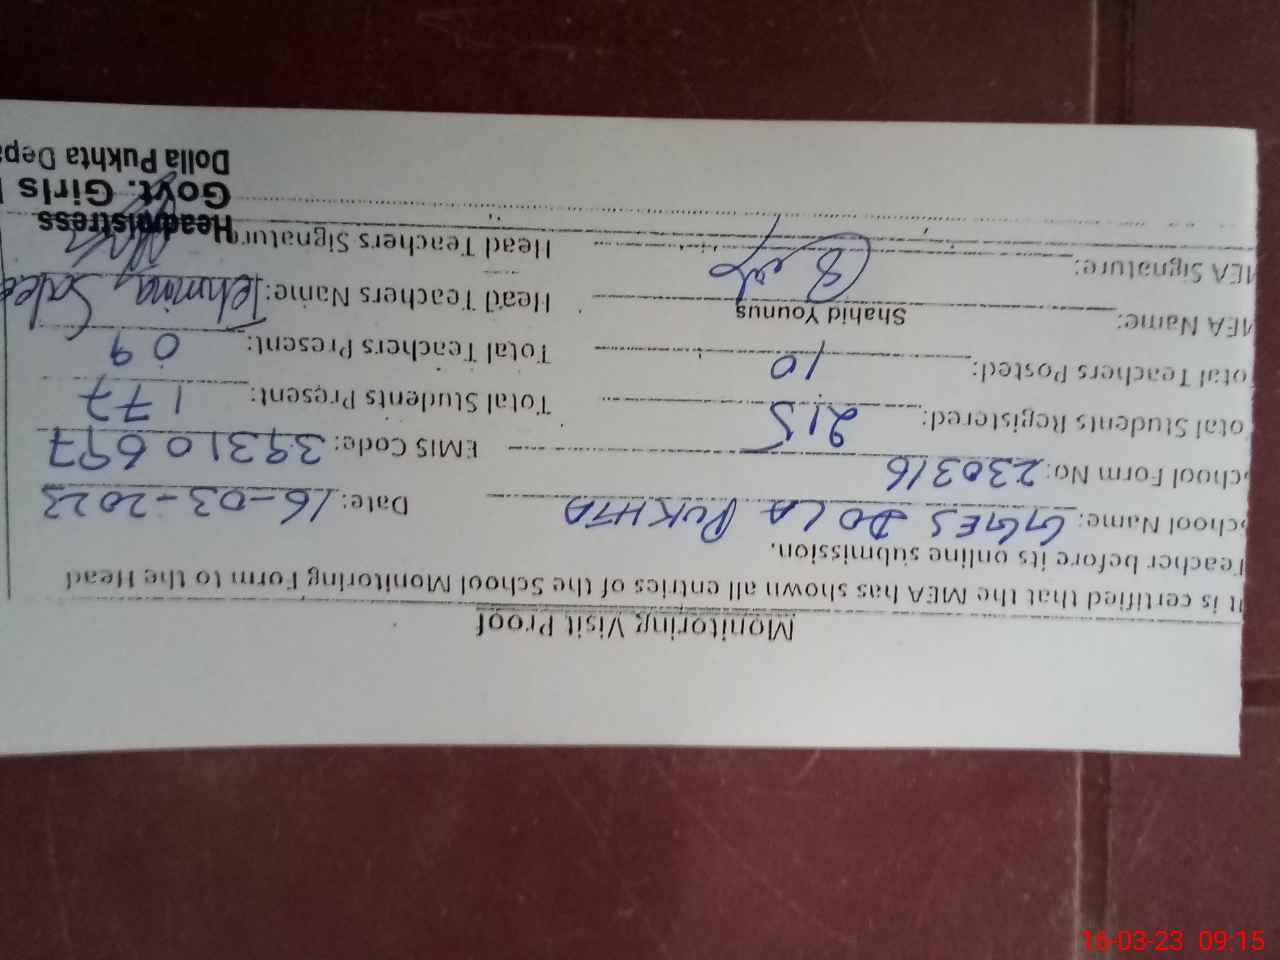 Monitoring Visit Proof
It is certified that the MEA has shown all entries of the School Monitoring Form to the Head
Teacher before its online submission.
School Name: GGES DOLA PUKHTA Date: 16-03-2023
School Form No: 230316 EMIS Code: 39310697
Total Students Registered: 215 Total Students Present: 177
Total Teachers Posted: 10 Total Teachers Present: 09
MEA Name: Shahid Younus Head Teachers Name: Tehmina
MEA Signature: Head Teachers Signature
Headmistress
Govt. Girls
Dolla Pukhta Depa
16-03-23 09:15